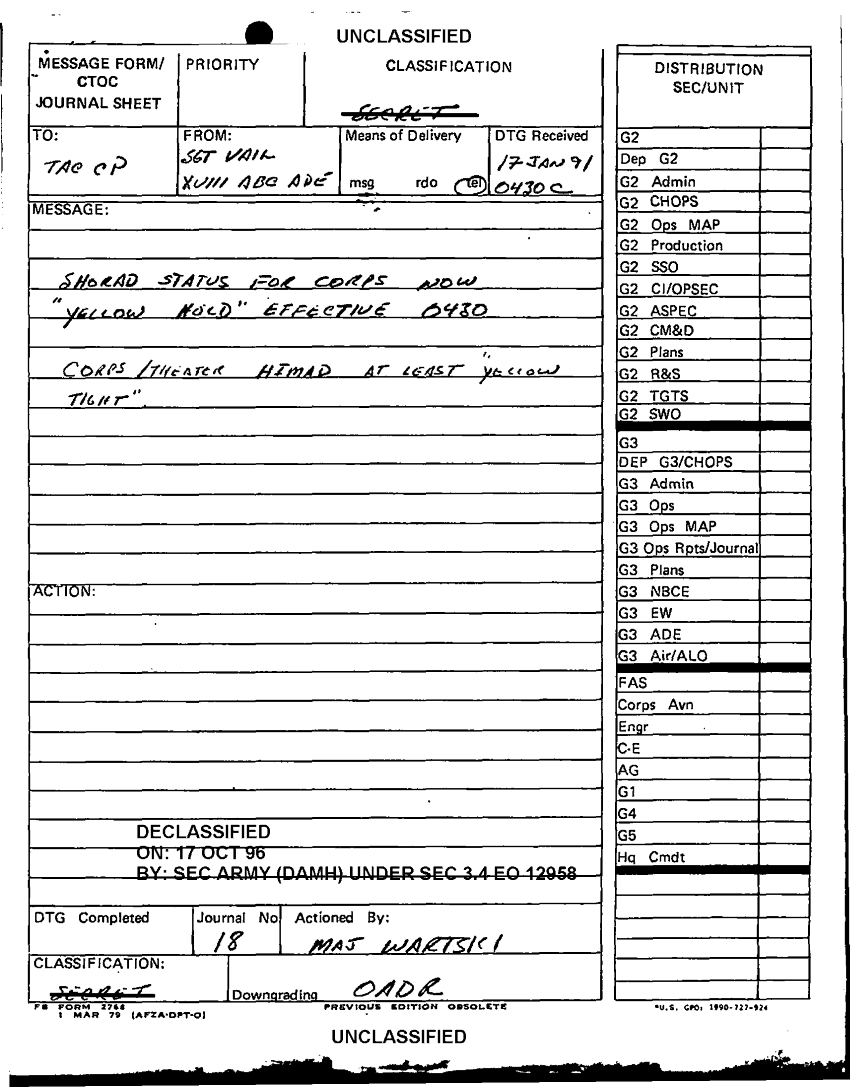 UNCLASSIFIED
MESSAGE FORM/
CTOC
JOURNAL SHEET
PRIORITY
CLASSIFICATION
SECRET
TO:
TAC CP
FROM:
SGT VAIL
XVIII ABC ADE
Means of Delivery
msg rdo tel
DTG Received
17 JAN 91
0430 C
MESSAGE:
SHORAD STATUS FOR CORPS NOW
"YELLOW HOLD" EFFECTIVE 0430
CORPS/THEATER HIMAD AT LEAST "YELLOW
TIGHT".
ACTION:
DECLASSIFIED
ON: 17 OCT 96
BY: SEC ARMY (DAMH) UNDER SEC 3.4 EO 12958
DTG Completed
Journal No
18
Actioned By:
MAJ WARTSKI
CLASSIFICATION:
SECRET
Downgrading OADR
FB FORM 2768
1 MAR 79 (AFZA-DPT-O)
PREVIOUS EDITION OBSOLETE
DISTRIBUTION
SEC/UNIT
G2
Dep G2
G2 Admin
G2 CHOPS
G2 Ops MAP
G2 Production
G2 SSO
G2 CI/OPSEC
G2 ASPEC
G2 CM&D
G2 Plans
G2 R&S
G2 TGTS
G2 SWO
G3
DEP G3/CHOPS
G3 Admin
G3 Ops
G3 Ops MAP
G3 Ops Rpts/Journal
G3 Plans
G3 NBCE
G3 EW
G3 ADE
G3 Air/ALO
FAS
Corps Avn
Engr
C-E
AG
G1
G4
G5
Hq Cmdt
*U.S. GPO: 1990-727-924
UNCLASSIFIED